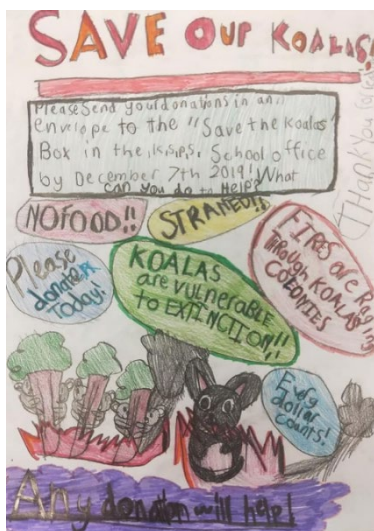 SAVE OUR KOALAS!
Please Send your donations in an
envelope to the "Save the Koalas"
Box in the, K.S.P.S, School office
by December 7th 2019! What
can you do to Help?
Thank You
NO FOOD!!
STRANDED!!
FIRES are
Through KOALAS
COLONIES
Please
donate
Today!
KOALAS
are VULNERABLE
to EXTINCTION!!
Every
dollar
counts!
Any donation will help!